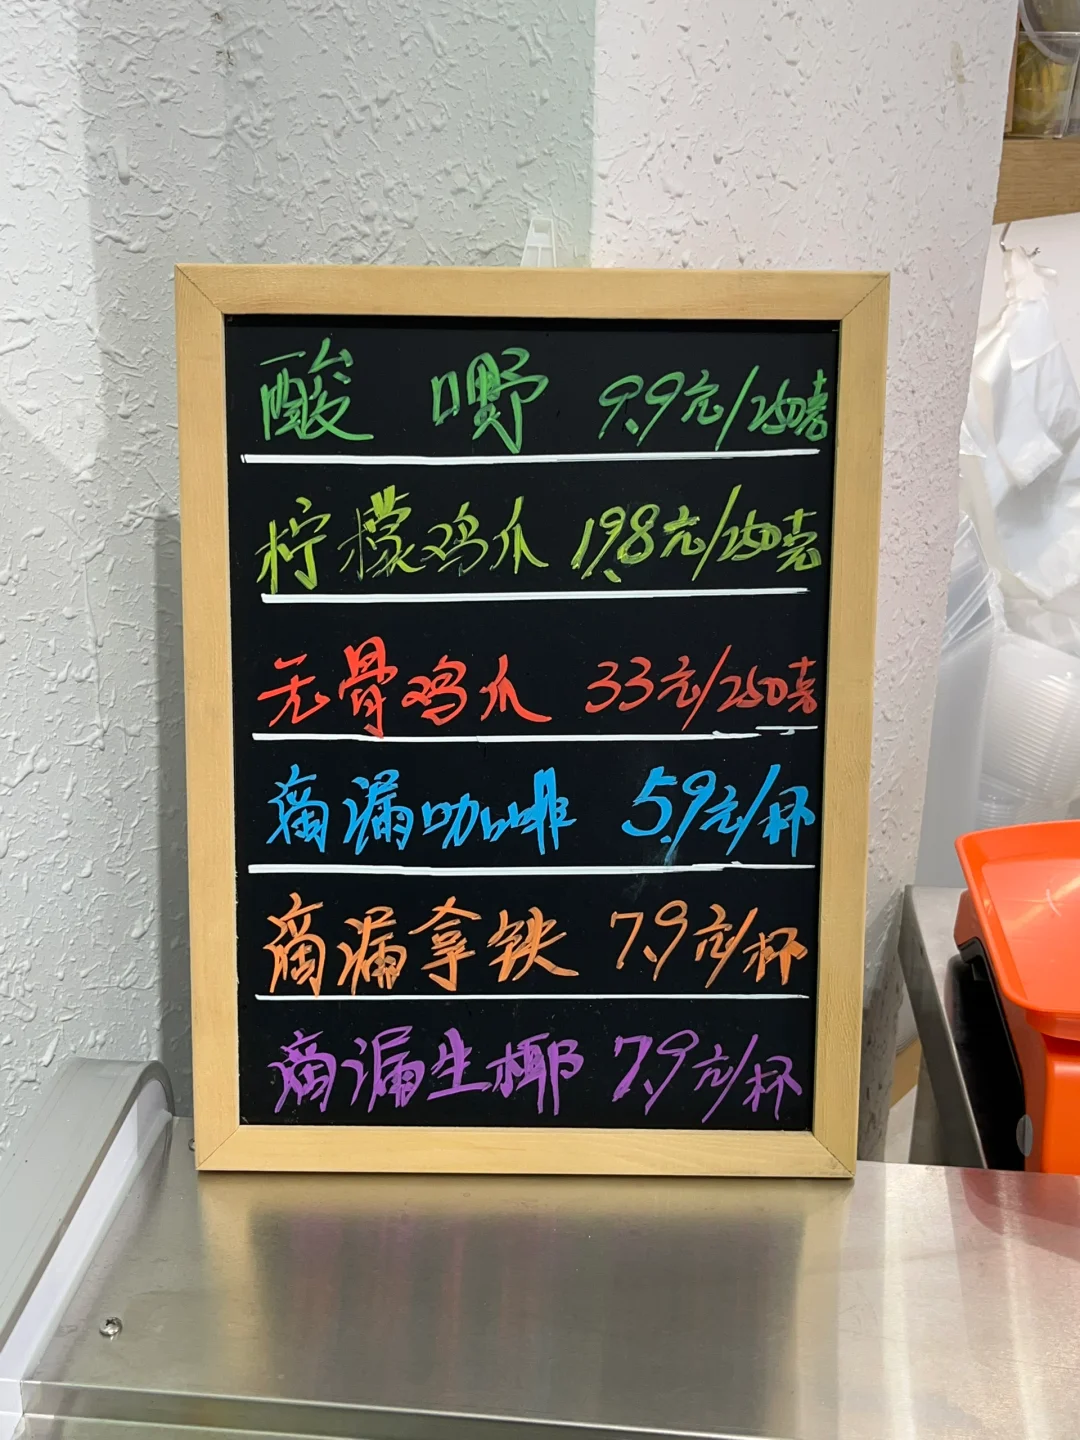 酸 嘢 9.9元/250克
柠檬鸡爪 19.8元/250克
无骨鸡爪 33元/250克
滴漏咖啡 5.9元/杯
滴漏拿铁 7.9元/杯
滴漏生椰 7.9元/杯